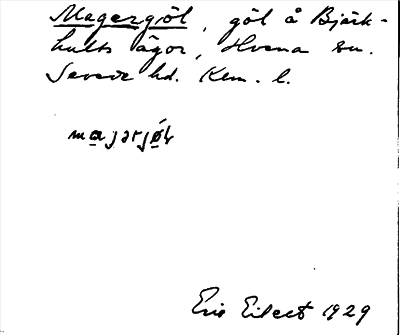 Magergöl, göl å Björk-
hults ägor, Hvena sn.
Sevede hd. Kalm. l.
majərjö̀l
Eric Eilert 1929